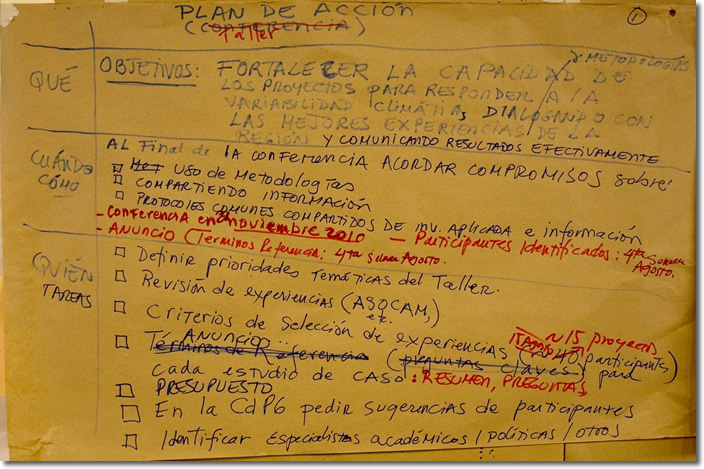 PLAN DE ACCIÓN
①
(CONFERENCIA)
Taller
QUÉ
OBJETIVOS: FORTALECER LA CAPACIDAD DE
y METODOLOGÍAS
LOS PROYECTOS PARA RESPONDER A LA
VARIABILIDAD CLIMÁTICA, DIALOGANDO CON
LAS MEJORES EXPERIENCIAS DE LA
REGIÓN Y COMUNICANDO RESULTADOS EFECTIVAMENTE
CUÁNDO
CÓMO
AL Final de la CONFERENCIA ACORDAR COMPROMISOS sobre:
USO de Metodologías
COMPARTIENDO INFORMACIÓN
PROTOCOLES COMUNES COMPARTIDOS DE INV. APLICADA e información
- CONFERENCIA en noviembre 2010 - Participantes Identificados: 4ta semana Agosto.
- ANUNCIO (Términos Referencia: 4ta semana Agosto.
QUIÉN
TAREAS
Definir prioridades Temáticas del Taller.
Revisión de experiencias (ASOCAM,)
etc.
Criterios de Selección de experiencias (30-40 participantes)
~15 proyectos
ANUNCIO...
Términos de Referencia (preguntas claves) para
cada estudio de caso: RESUMEN, PREGUNTAS
PRESUPUESTO
En la CdP6 pedir sugerencias de participantes
Identificar especialistas académicos / políticas / otros